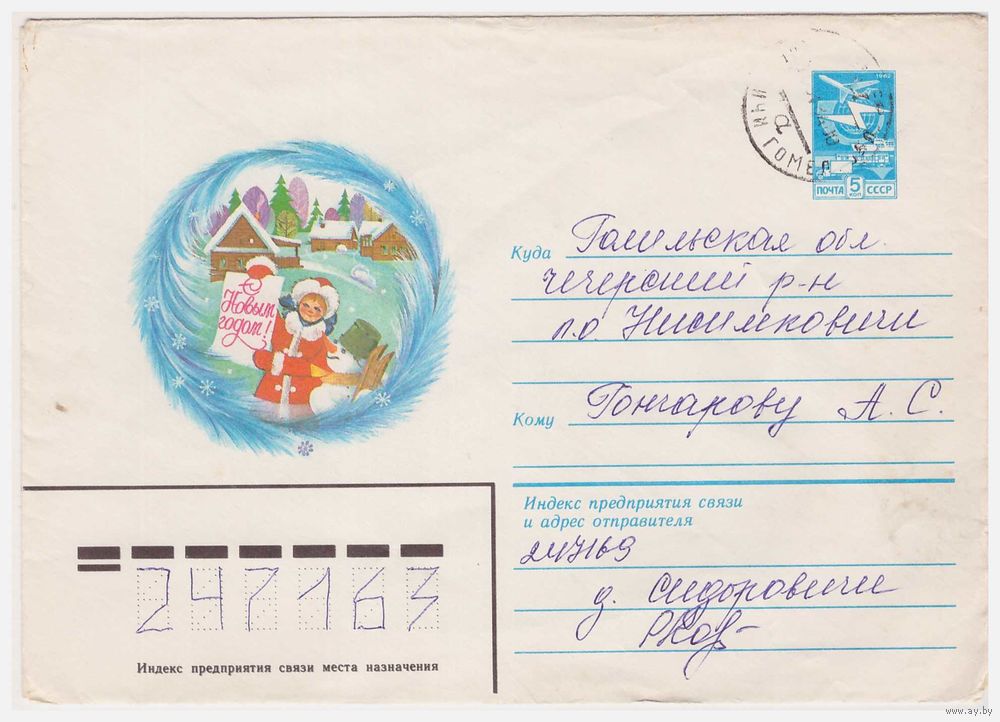 1982
ПОЧТА 5 КОП СССР
ГОМЕЛ
С
Новым
годом!
Куда Гомельская обл.
Чечерский р-н
п.о. Нисимковичи
Кому Гончарову А. С.
Индекс предприятия связи
и адрес отправителя
247169
д. Сидоровичи
247163
Индекс предприятия связи места назначения
www.ay.by